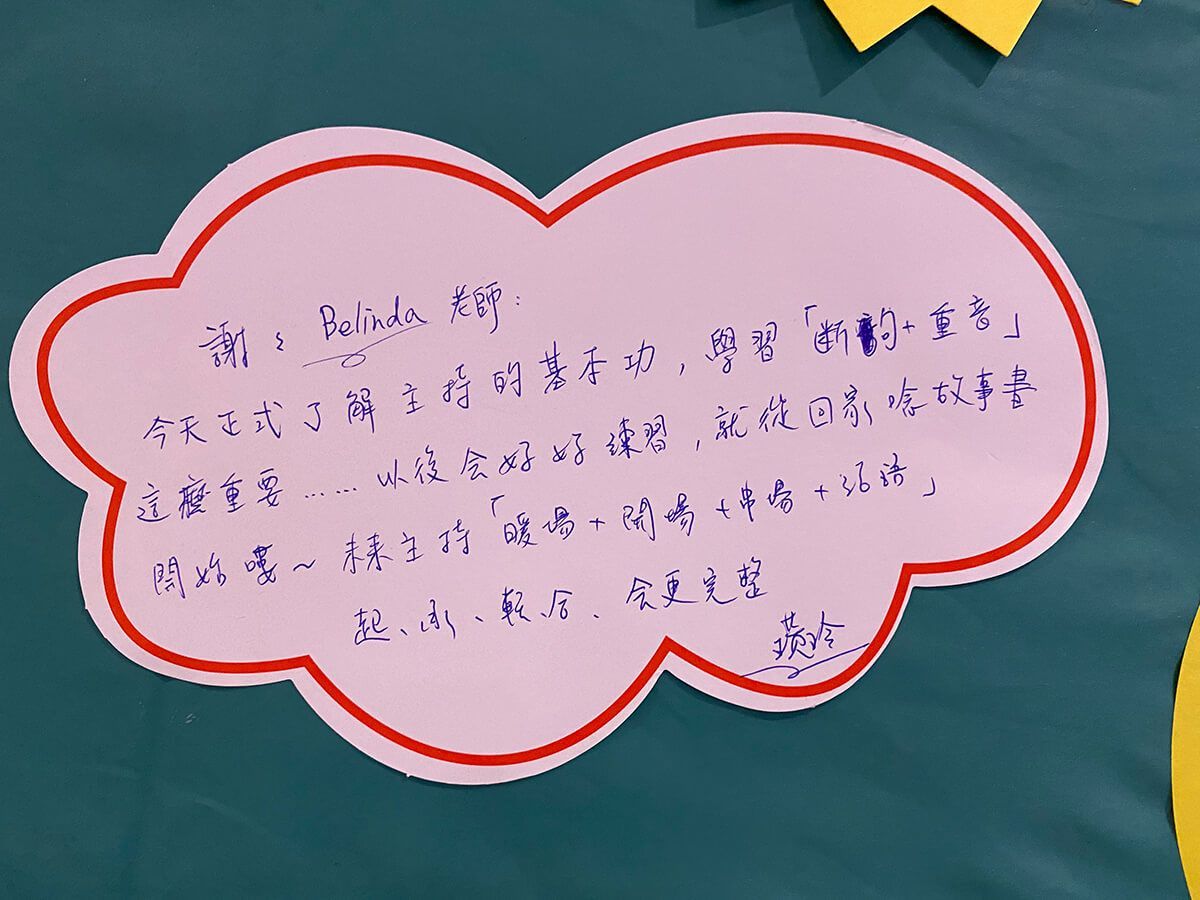 謝々 Belinda 老師：
今天正式了解主持的基本功，學習「断句+重音」
這麼重要……以後会好好練習，就從回家唸故事書
開始嘍～未來主持「暖場+開場+串場+結語」
起、承、轉、合、会更完整
玲